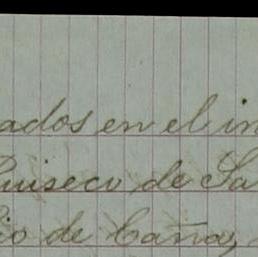 ados en el in
uiseco de Sa
io de Caña,